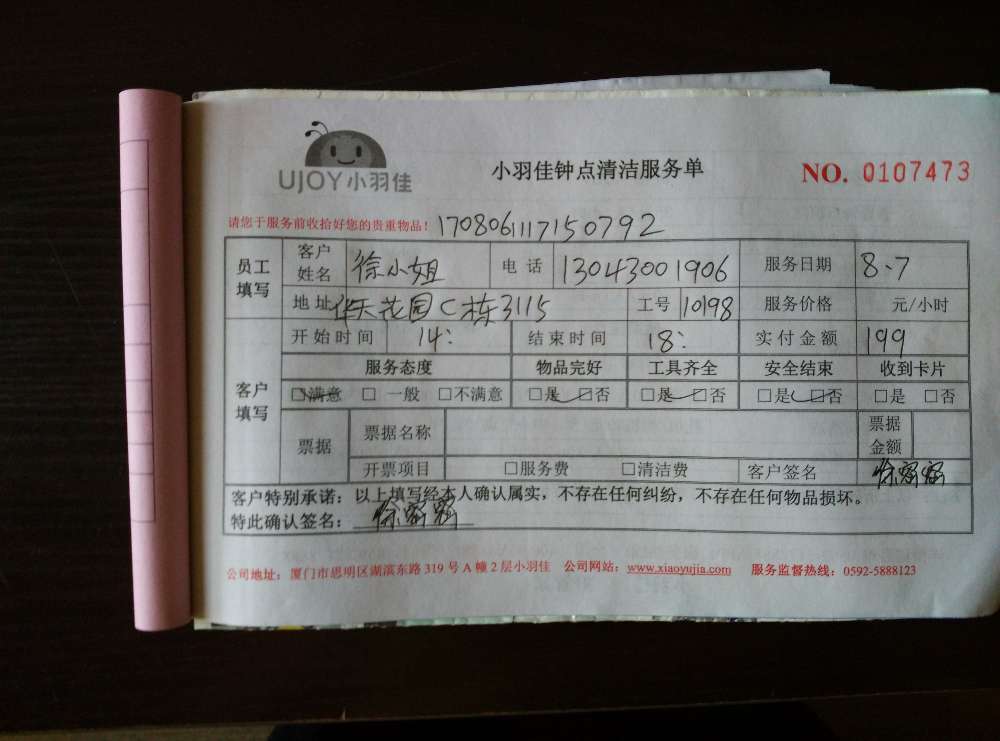 UJOY小羽佳
小羽佳钟点清洁服务单
NO. 0107473
请您于服务前收拾好您的贵重物品！ 1708061117150792
员工填写 客户姓名 徐小姐 电话 13043001906 服务日期 8、7
地址 华天花园C栋3115 工号 10198 服务价格 元/小时
客户填写 开始时间 14： 结束时间 18： 实付金额 199
服务态度 物品完好 工具齐全 安全结束 收到卡片
□满意 □一般 □不满意 □是 □否 □是 □否 □是 □否 □是 □否
票据 票据名称 票据金额
开票项目 □服务费 □清洁费 客户签名
客户特别承诺：以上填写经本人确认属实，不存在任何纠纷，不存在任何物品损坏。
特此确认签名：
公司地址：厦门市思明区湖滨东路 319 号 A 幢 2 层小羽佳 公司网站：www.xiaoyujia.com 服务监督热线：0592-5888123